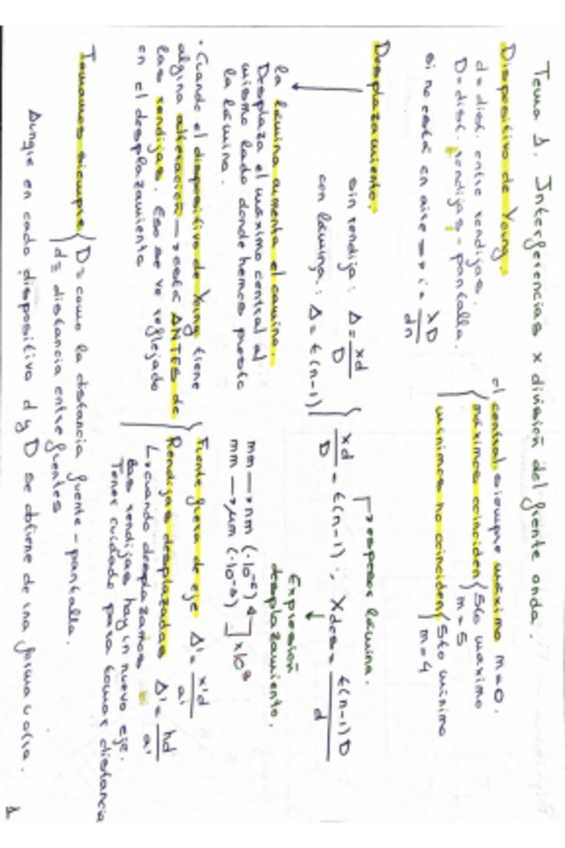 Tema 1. Interferencias x división del frente onda.
Dispositivo de Young.
d = dist. entre rendijas.
D = dist. rendijas - pantalla.
si no está en aire → i = λD/dn
el central siempre máximo m=0.
máximos coinciden { 5to máximo m=5
mínimos no coinciden { 5to mínimo m=4
Desplazamiento.
sin rendija: Δ = xd/D
con lámina: Δ = t(n-1)
xd/D = t(n-1) ∴ xdes = t(n-1)D/d
→ espesor lámina.
Expresión desplazamiento.
la lámina aumenta el camino.
Desplaza el máximo central al
mismo lado donde hemos puesto
la lámina.
mm → nm (·10⁻⁶)
mm → μm (·10⁻³)
x10³
· Cuando el dispositivo de Young tiene
alguna alteración → está ANTES de
las rendijas. Eso se ve reflejado
en el desplazamiento
Fuente fuera de eje Δ' = x'd/a'
Rendijas desplazadas Δ' = hd/a'
↳ cuando desplazamos
las rendijas hay un nuevo eje.
Tener cuidado para tomar distancia
Tomamos siempre { D = como la distancia fuente - pantalla.
d ≡ distancia entre fuentes
Aunque en cada dispositivo d y D se obtiene de una forma u otra.
1